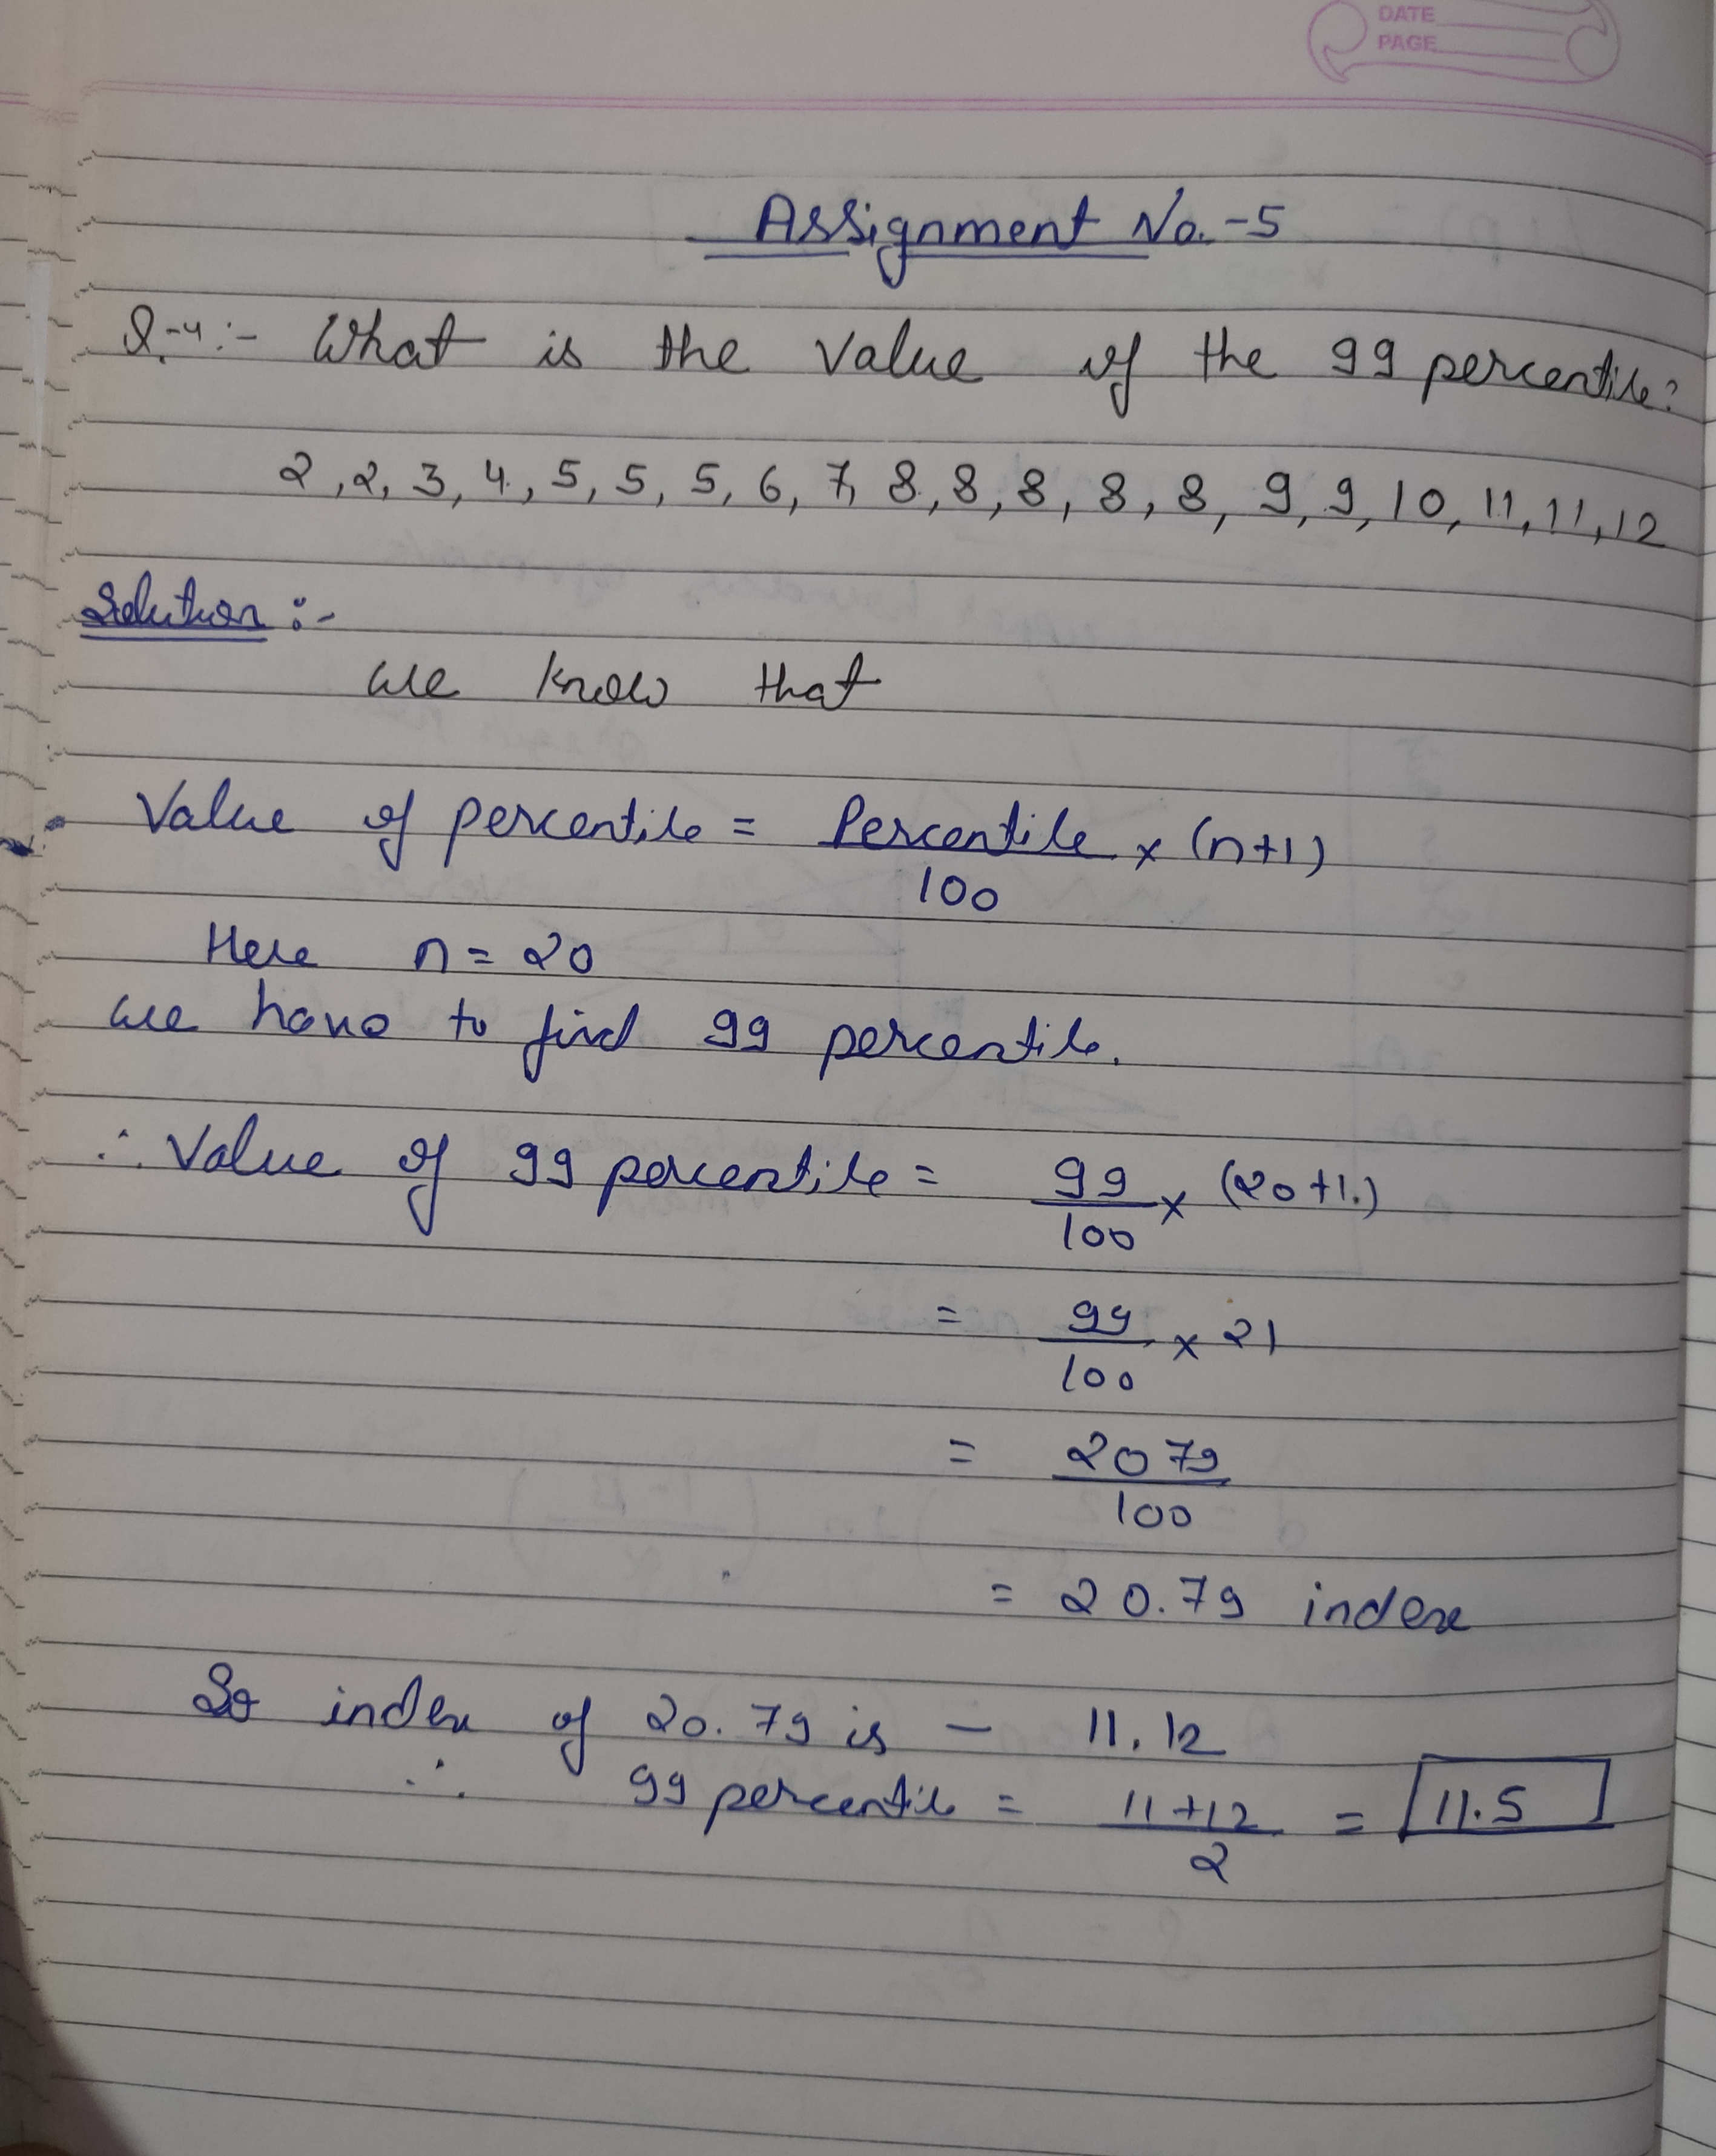 DATE
PAGE
Assignment No.-5
Q.-4:- What is the value of the 99 percentile?
2, 2, 3, 4, 5, 5, 5, 6, 7, 8, 8, 8, 8, 8, 9, 9, 10, 11, 11, 12
Solution :-
we know that
Value of percentile = Percentile/100 × (n+1)
Here n = 20
we have to find 99 percentile.
∴ Value of 99 percentile = 99/100 × (20+1)
= 99/100 × 21
= 2079/100
= 20.79 index
So index of 20.79 is – 11, 12
∴ 99 percentile = 11+12/2 = 11.5